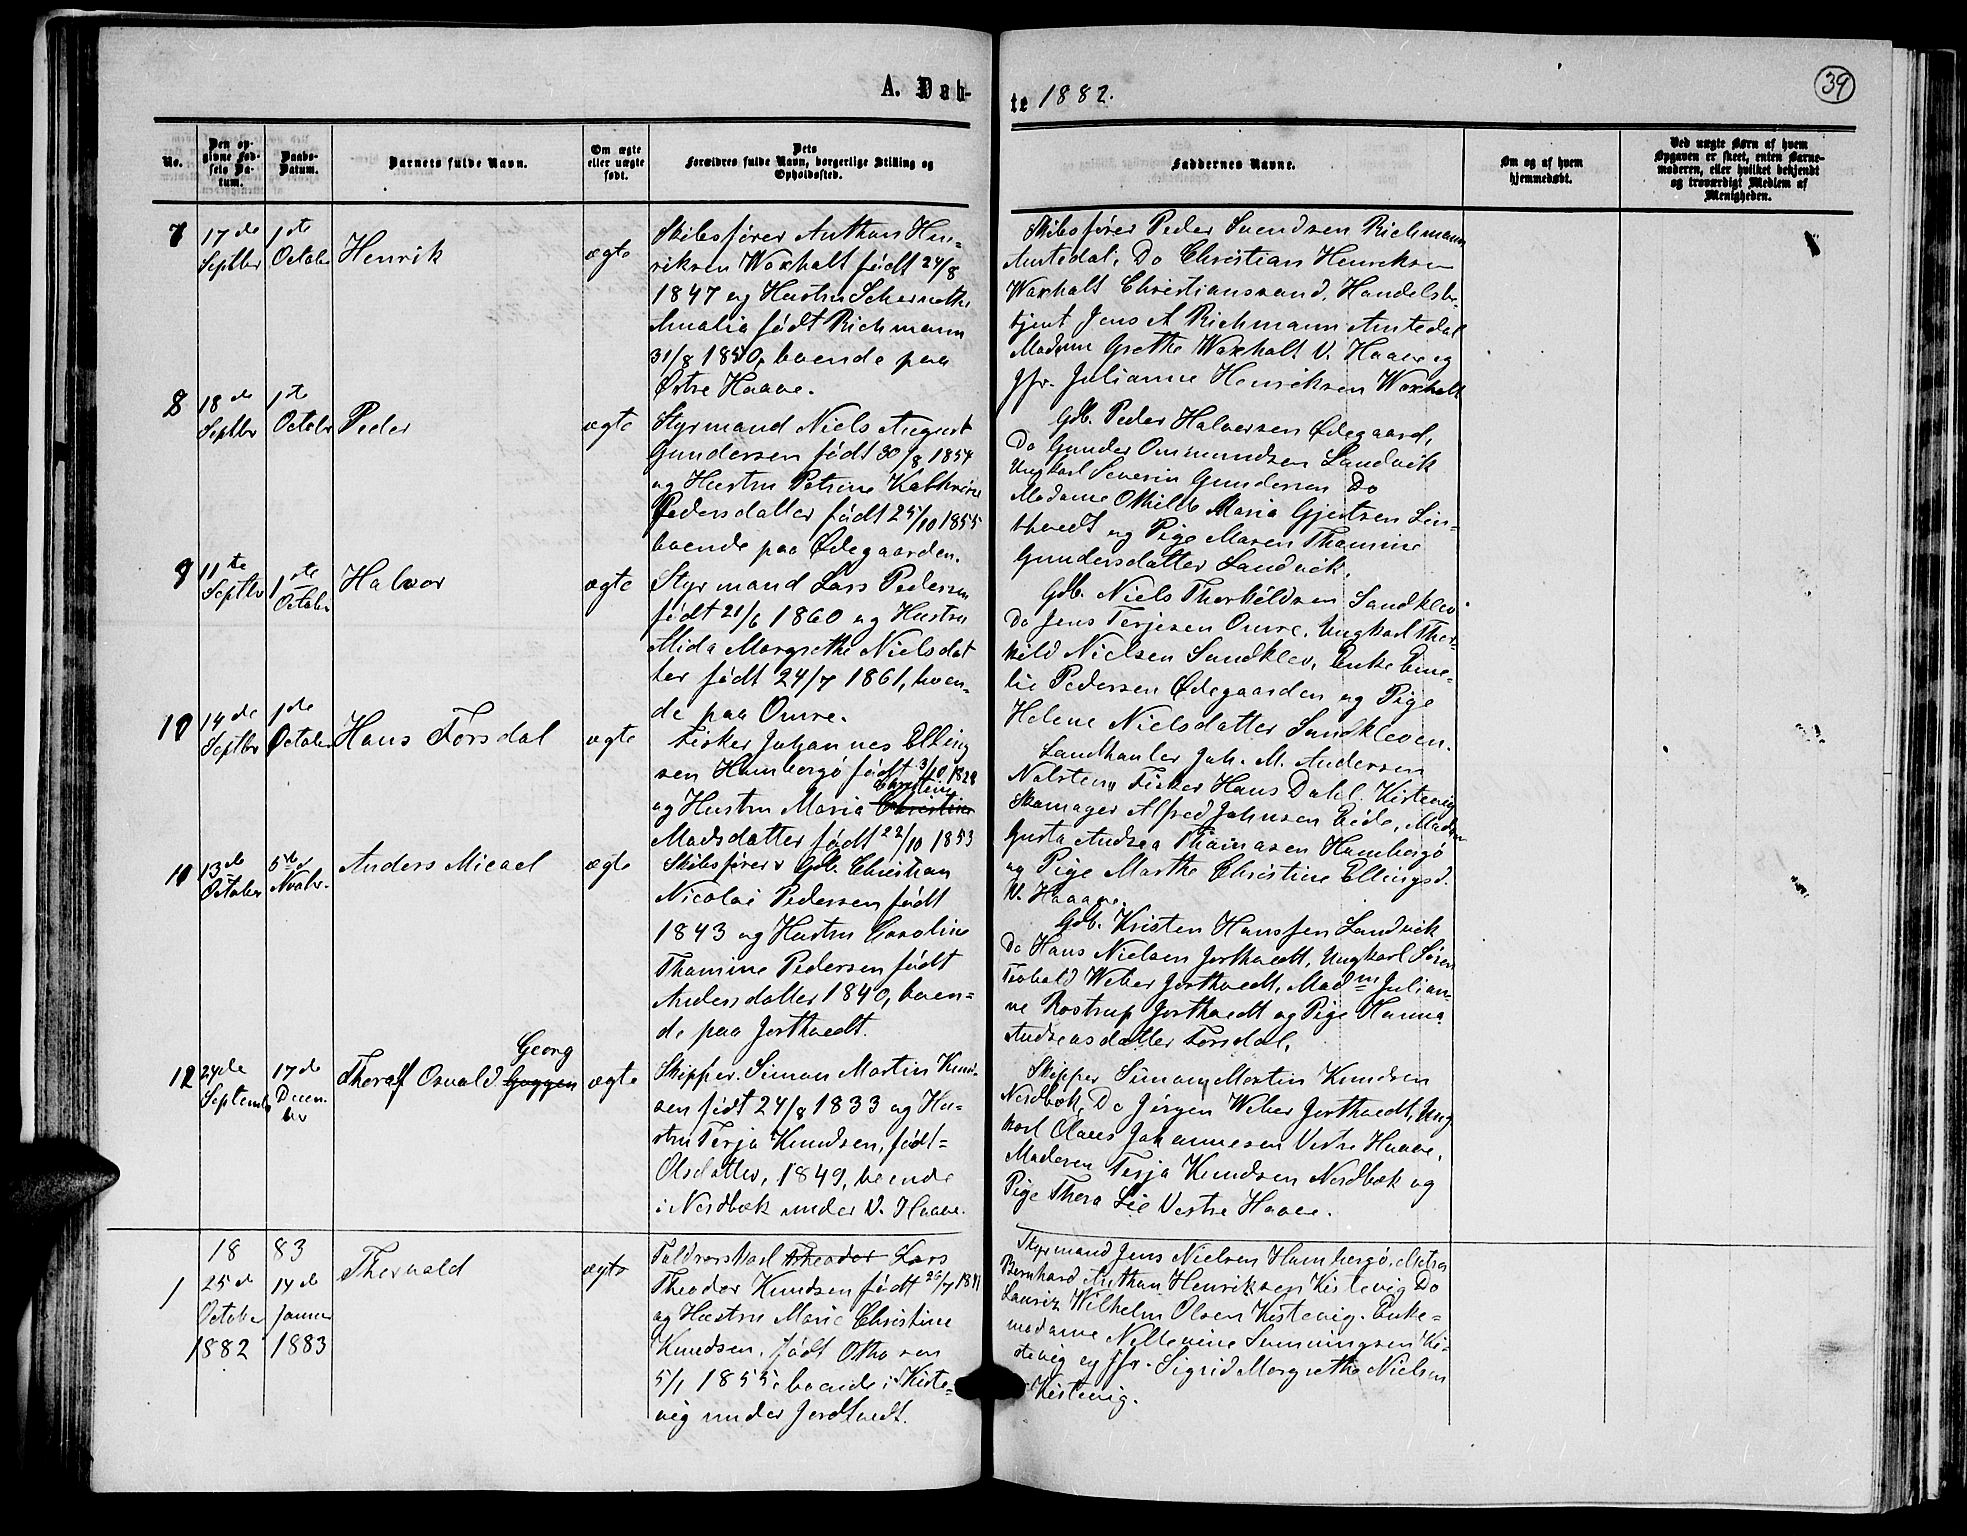 A. Døb-
te 1882.
39
No.
Den opgivne Fødsels Datum.
Daabs-Datum.
Barnets fulde Navn.
Om ægte eller uægte født.
Dets Forældres fulde Navn, borgerlige Stilling og Opholdssted.
Faddernes Navne.
Om og af hvem hjemmedøbt.
Ved uægte Børn af hvem Opgaven er skeet, enten Barnemoderen, eller hvilket bekjendt og troværdigt Medlem af Menigheden.
7
17de Septbr
1ste October
Henrik
ægte
Skibsfører Anthon Hen-
riksen Waxhalt født 24/8
1847 og Hustru
Amalia født Richmann
31/8 1850, boende paa
Østre Haave.
Skibsfører Peder Svendsen Richmann
Amtedal, Do Christian Henriksen
Waxhalt Christianssand, Handelsbe-
tjent Jens A Richmann Amtedal
Madame Grethe Waxhalt V. Haave og
Jfr. Julianne Henriksen Waxhalt
8
18de Septbr
1ste October
Peder
ægte
Styrmand Niels August
Gundersen født 30/8 1854
og Hustru Petrine Kathrine
Pedersdatter født 25/10 1855
boende paa Ødegaarden.
Gdb. Peder Halvorsen Ødegaard,
Do Gunder Ommundsen Landvik
Ungkarl Severin Gundersen Do
Madame Othilde Maria Gjertsen Lin-
thvedt og Pige Maren Thomine
Gundersdatter Landvik.
9
11te Septbr
1ste October
Halvor
ægte
Styrmand Lars Pedersen
født 21/6 1860 og Hustru
Mida Margrethe Nielsdat
ter født 24/7 1861, boen-
de paa Omre.
Gdb. Niels Thorkildsen Sandklev
Do Jens Terjesen Omre, Ungkarl Thor-
kild Nielsen Sandklev, Enke Eme-
lie Pedersen Ødegaarden og Pige
Helene Nielsdatter Sandkleven.
10
14de Septbr
1ste October
Hans Forsdal
ægte
Fisker Johannes Elling
sen Hambergø født 3/10 1828
Christine
og Hustru Maria Christine
Madsdatter født 22/10 1853
Landhanler Joh. M. Andersen
Nolsten, Fisker Hans Dahl Kistevig
Skomager Alfred Johnsen Eide, Madam
Gusta Andrea Thomasen Hambergø
og Pige Marthe Christine Ellingsd.
V. Haave.
11
13de October
5te Novbr.
Anders Micael
ægte
Skibsfører og Gdb. Christian
Nicolai Pedersen født
1843 og Hustru Caroline
Thomine Pedersen født
Andersdatter 1840, boen-
de paa Jorthvedt.
Gdb. Kristen Hanssen Landvik
Do Hans Nielsen Jorthvedt, Ungkarl Søren
Teobald Weber Jorthvedt, Madm Julian-
ne Rostrup Jorthvedt og Pige Hanna
Andreasdatter Forsdal,
12
24de September
17de December
Georg
Thoralf Osvald Gaggen
ægte
Skipper Simon Martin Knud-
sen født 24/8 1833 og Hu-
stru Terja Knudsen, født
Olsdatter, 1849, boende
i Nordbæk under V. Haave.
Skipper Simon Martin Knudsen
Nordbæk, Do Jørgen Weber Jorthvedt, Ung
karl Olaus Johannesen Vestre Haave,
Moderen Terja Knudsen Nordbæk og
Pige Thora Lie Vestre Haave.
1883
1
25de October 1882
14de Januar 1883
Thorvald
ægte
Toldrorskarl Theodor Lars
Theodor Knudsen født 26/7
og Hustru Marie Christine
Knudsen, født Othosen
5/1 1855, boende i Kiste-
vig under Jordtvedt.
Styrmand Jens Nielsen Hambergø,
Bernhard Anthon Henriksen Kistevig Do
Lauriz Wilhelm Olsen Kistevig. Enke-
madame Nellevine Sunningsen Ki-
stevig og Jfr. Sigrid Margrethe Nielsen
Kistevig.